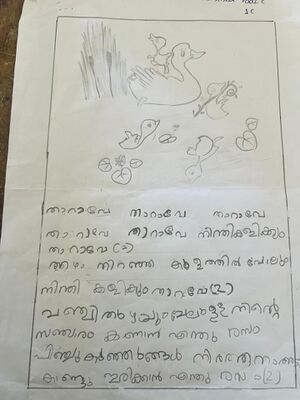 1C
താറാവേ താറാവേ താറാവേ
താറാവേ താറാവേ നീന്തികളിക്കും
താറാവേ (2)
ആഴം നിറഞ്ഞ കുളത്തിൽ പോലും
നീന്തി കളിക്കും താറാവേ(2)
വഞ്ചി തുഴയും പോലുള്ള നിന്റെ
സഞ്ചാരം കാണാൻ എന്തു രസം
പിഞ്ചു കുഞ്ഞുങ്ങൾ
കണ്ടു രസിക്കാൻ എന്തു രസം (2)